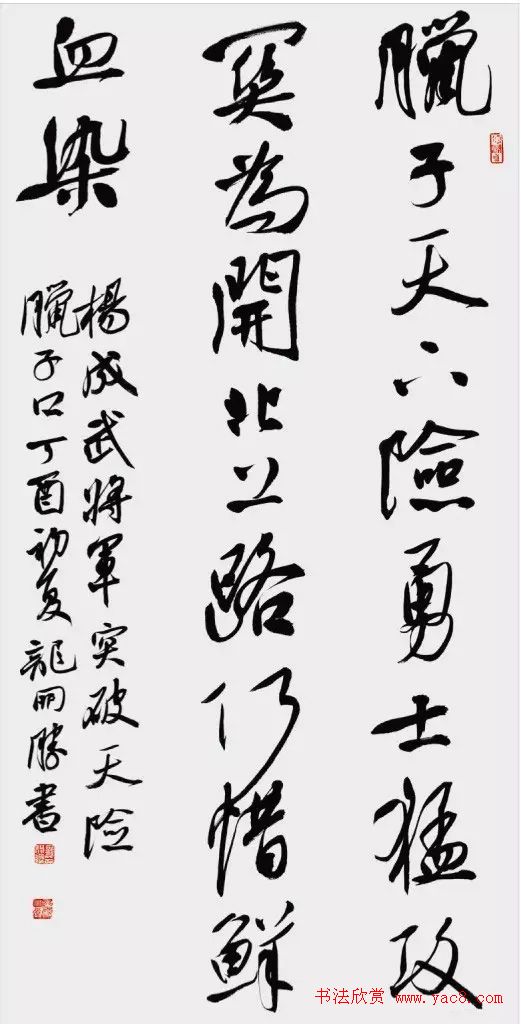 臘子天下險勇士猛攻
関為開北上路何惜鮮
血染
楊成武將軍突破天險
臘子口丁酉初夏龍開勝書
书法欣赏 www.yac8.com